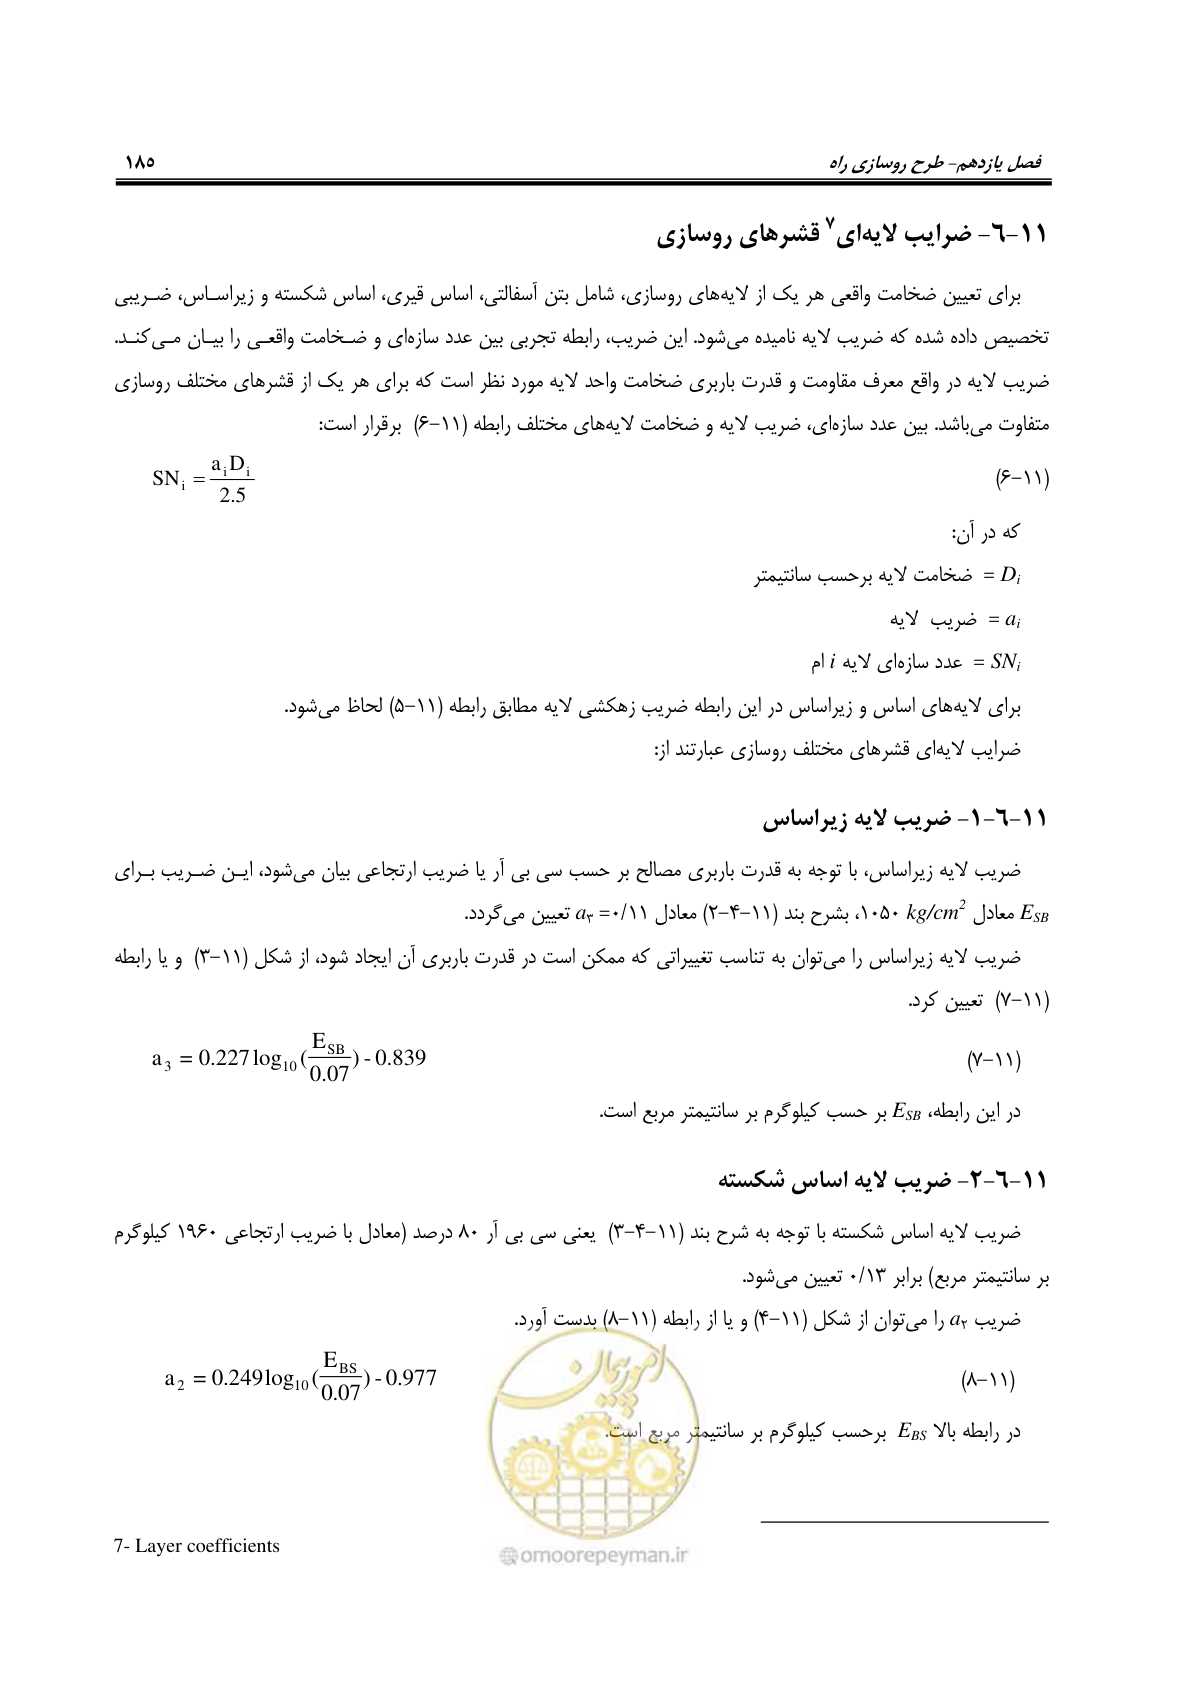 فصل یازدهم- طرح روسازی راه ۱۸۵
۱۱-۶- ضرایب لایه‌ای۷ قشرهای روسازی
برای تعیین ضخامت واقعی هر یک از لایه‌های روسازی، شامل بتن آسفالتی، اساس قیری، اساس شکسته و زیراساس، ضریبی
تخصیص داده شده که ضریب لایه نامیده می‌شود. این ضریب، رابطه تجربی بین عدد سازه‌ای و ضخامت واقعی را بیان می‌کند.
ضریب لایه در واقع معرف مقاومت و قدرت باربری ضخامت واحد لایه مورد نظر است که برای هر یک از قشرهای مختلف روسازی
متفاوت می‌باشد. بین عدد سازه‌ای، ضریب لایه و ضخامت لایه‌های مختلف رابطه (۱۱-۶) برقرار است:
(۱۱-۶) SN_i = a_i D_i / 2.5
که در آن:
D_i = ضخامت لایه برحسب سانتیمتر
a_i = ضریب لایه
SN_i = عدد سازه‌ای لایه i ام
برای لایه‌های اساس و زیراساس در این رابطه ضریب زهکشی لایه مطابق رابطه (۱۱-۵) لحاظ می‌شود.
ضرایب لایه‌ای قشرهای مختلف روسازی عبارتند از:
۱۱-۶-۱- ضریب لایه زیراساس
ضریب لایه زیراساس، با توجه به قدرت باربری مصالح بر حسب سی بی آر یا ضریب ارتجاعی بیان می‌شود، این ضریب برای
E_SB معادل ۱۰۵۰ kg/cm²، بشرح بند (۱۱-۴-۲) معادل a۳ =۰/۱۱ تعیین می‌گردد.
ضریب لایه زیراساس را می‌توان به تناسب تغییراتی که ممکن است در قدرت باربری آن ایجاد شود، از شکل (۱۱-۳) و یا رابطه
(۱۱-۷) تعیین کرد.
(۱۱-۷) a_3 = 0.227 log_10 (E_SB / 0.07) - 0.839
در این رابطه، E_SB بر حسب کیلوگرم بر سانتیمتر مربع است.
۱۱-۶-۲- ضریب لایه اساس شکسته
ضریب لایه اساس شکسته با توجه به شرح بند (۱۱-۴-۳) یعنی سی بی آر ۸۰ درصد (معادل با ضریب ارتجاعی ۱۹۶۰ کیلوگرم
بر سانتیمتر مربع) برابر ۰/۱۳ تعیین می‌شود.
ضریب a۲ را می‌توان از شکل (۱۱-۴) و یا از رابطه (۱۱-۸) بدست آورد.
(۱۱-۸) a_2 = 0.249 log_10 (E_BS / 0.07) - 0.977
در رابطه بالا E_BS برحسب کیلوگرم بر سانتیمتر مربع است.
امور پیمان
7- Layer coefficients
@omoorepeyman.ir